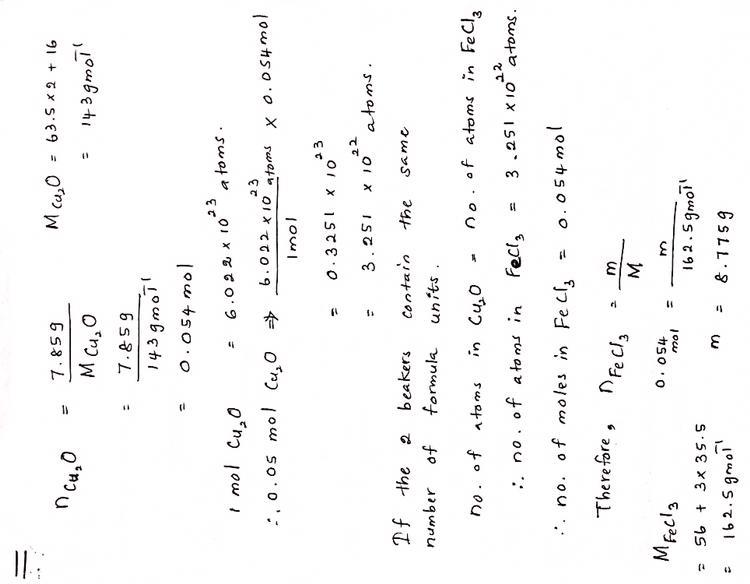 n Cu₂O = 7.85g / M Cu₂O    M Cu₂O = 63.5 x 2 + 16
= 7.85g / 143 gmol⁻¹    = 143 gmol⁻¹
= 0.054 mol
1 mol Cu₂O = 6.022 x 10²³ atoms.
∴ 0.05 mol Cu₂O ⇒ 6.022 x 10²³ atoms / 1mol x 0.054 mol
= 0.3251 x 10²³
= 3.251 x 10²² atoms.
If the 2 beakers contain the same
number of formula units.
no. of atoms in Cu₂O = no. of atoms in FeCl₃
∴ no. of atoms in FeCl₃ = 3.251 x 10²² atoms.
∴ no. of moles in FeCl₃ = 0.054 mol
Therefore, n FeCl₃ = m / M
M FeCl₃    0.054 mol = m / 162.5 gmol⁻¹
= 56 + 3 x 35.5
= 162.5 gmol⁻¹    m = 8.775g